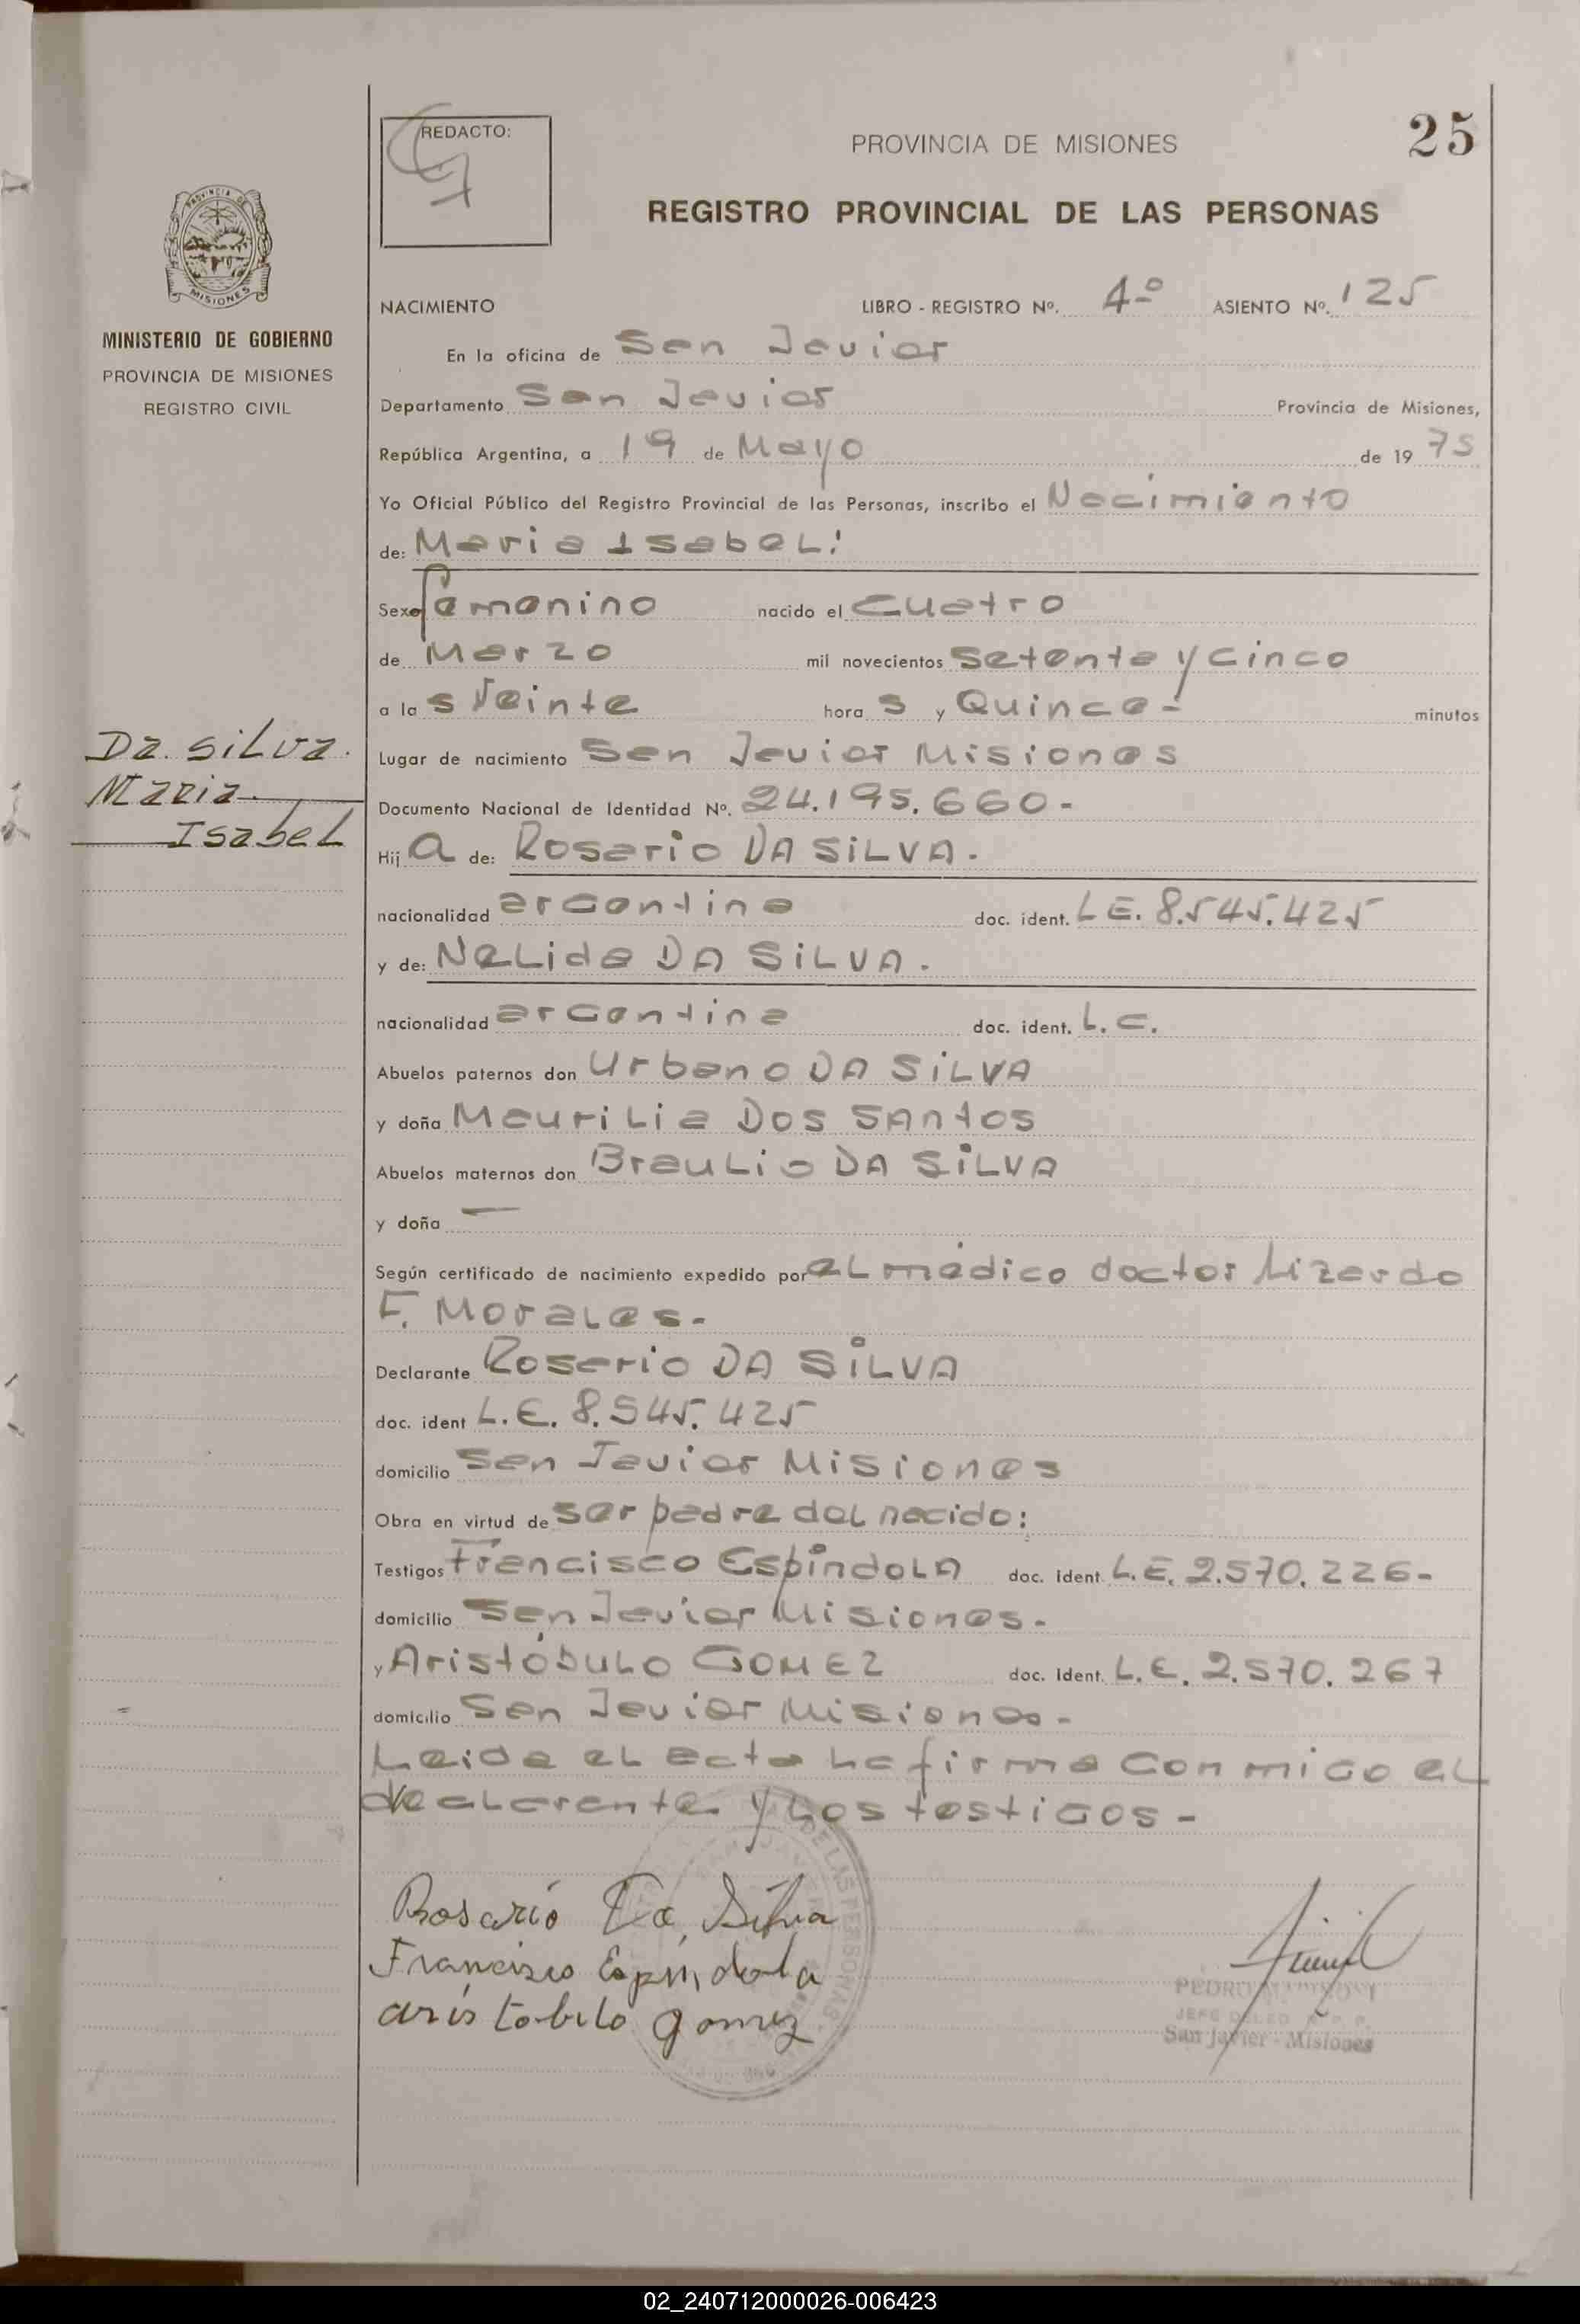 REDACTO:
PROVINCIA DE MISIONES
25
REGISTRO PROVINCIAL DE LAS PERSONAS
PROVINCIA DE
MISIONES
MINISTERIO DE GOBIERNO
PROVINCIA DE MISIONES
REGISTRO CIVIL
NACIMIENTO LIBRO - REGISTRO Nº. 4º ASIENTO Nº. 125
En la oficina de San Javier
Departamento San Javier Provincia de Misiones,
República Argentina, a 19 de Mayo de 19 75
Yo Oficial Público del Registro Provincial de las Personas, inscribo el Nacimiento
de: Maria Isabel:
Sexo femenino nacido el cuatro
de Marzo mil novecientos setenta y cinco
a las Veinte horas y Quince- minutos
Da. Silva.
Maria
Isabel
Lugar de nacimiento San Javier Misiones
Documento Nacional de Identidad Nº. 24.195.660-
Hija de: Rosario DA SiLVA.
nacionalidad argentina doc. ident. L.E. 8.545.425
y de: NeLida DA SiLVA.
nacionalidad argentina doc. ident. L.C.
Abuelos paternos don Urbano DA SiLVA
y doña MauriLia Dos SAntos
Abuelos maternos don BrauLio DA SiLVA
y doña —
Según certificado de nacimiento expedido por eL médico doctor Lizardo
F. MoraLes.-
Declarante Rosario DA SiLVA
doc. ident L.E. 8.545.425
domicilio San Javier Misiones
Obra en virtud de ser padre deL nacido:
Testigos Francisco EspíndoLA doc. ident. L.E. 2.570.226-
domicilio San Javier Misiones.-
y AristóbuLo GOMEZ doc. ident. L.E. 2.570.267
domicilio San Javier Misiones-
Leida eL acta La firma conmigo eL
decLarante y Los testigos-
Rosario Da Silva
Francisco Espindola
aristobulo gomez
DE LAS PERSONAS
PEDRO
JEFE
San Javier - Misiones
02_240712000026-006423